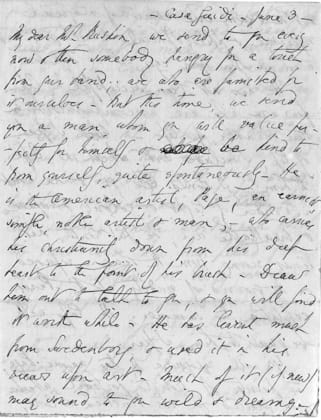 - Casa Guidi - June 3 -
My dear Mr Ruskin, we send to you every
now & then somebody hungry for a touch
from your hand .. we who are famished for
it ourselves - But this time, we send
you a man whom you will value per-
fectly for himself & be kind to
from yourself, quite spontaneously - He
is the American artist, Page, an earnest
simple, noble artist & man, - who carries
his Christianity down from his deep
heart to the point of his brush - Draw
him out to talk to you, & you will find
it worth while - He has learnt much
from Swedenborg, & used it in his
views upon art - Much of it (if new)
may sound to you wild & dreamy -